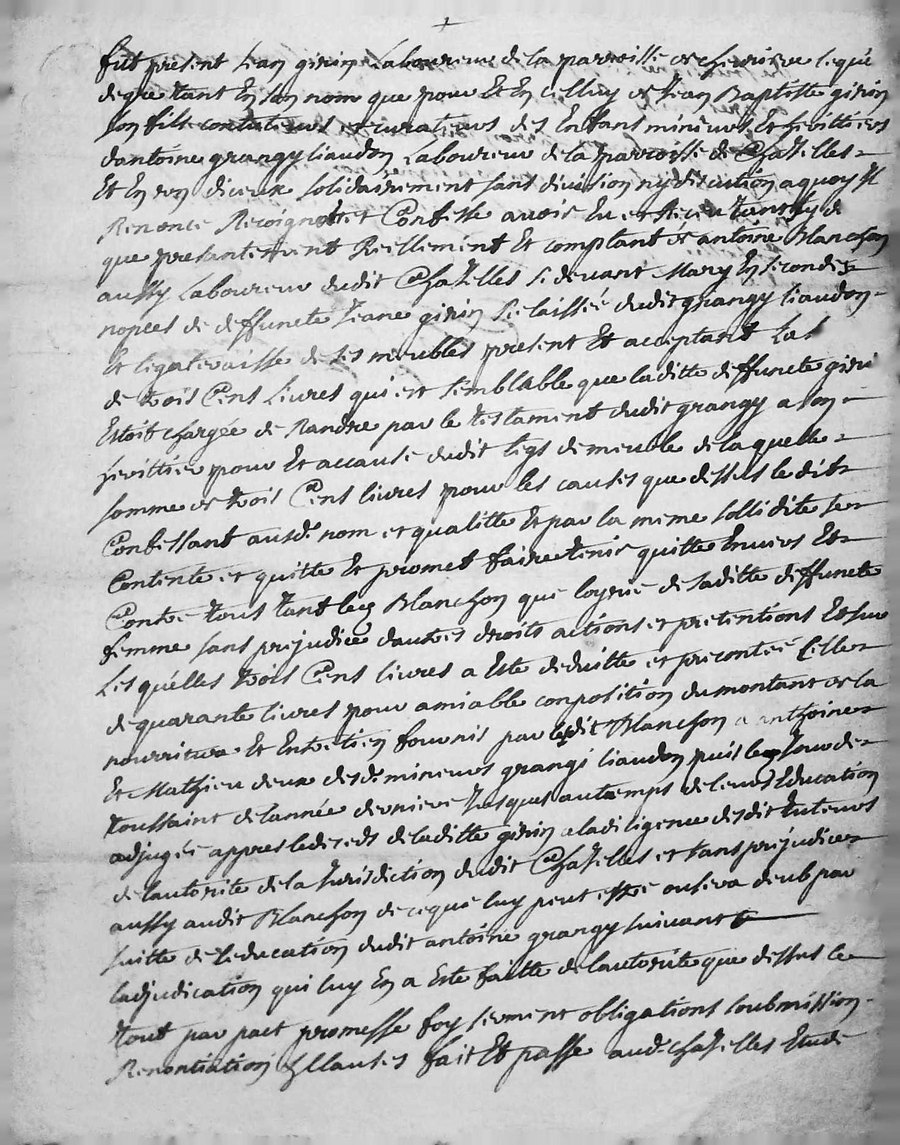 fût present Jean girin Laboureur de la parroisse de chevriere lequel
de gre tant En son nom que pour Et En Celluy de Jean Baptiste girin
son fils contuteurs et curateurs des Enfans mineurs Et heritiers
dantoine grangy liaudon Laboureur de la parroisse de Chazelles
Et En son diceux solidairement sans division ny discution aquoy Il
Renonce Recoignoit et Confesse avoir Eu et Receu
que presantement Reellement Et comptant de antoine Blanchon
aussy Laboureur dudit Chazelles sy devant Mary En secondes
nopces de deffuncte Jeane girin delaissée dudit grangy liaudon
Et legateraisse de ses meubles present Et acceptant La
de trois Cens Livres qui est semblable que laditte deffuncte girin
Estoit chargée de Randre par le testament dudit grangy a son
heritier pour Et accause dudit legs de meuble de laquelle
somme de trois Cens livres pour les causes que dessus le dit
Confessant ausd. nom et qualitte Et par la meme sollidite se
Contente et quitte Et promet faire tenir quitte Envers Et
Contre tous tant led Blanchon que loyrie de saditte deffuncte
femme sans prejudice dautres droits actions et pretentions Et sur
Lesquelles trois Cens livres a Este deduitte et precontée Celle
de quarante livres pour amiable conposition du montant de la
nourriture Et Entretien fournis par ledit Blanchon a anthoine
Et Mathieu deux desd. mineurs grangi liaudon puis le Jour de
toussaint de lannée derniere Jusques au temps de leurs Education
adjugée appres le deceds de laditte girin a la diligence desdit tuteurs
de lautorite de la Jurisdiction dudit Chazelles et sans prejudice
aussy audit Blanchon de ce que luy peut estre ou sera deub par
suitte de leducation dudit antoine grangy suivant
ladjudication qui luy En a Este faitte de lautorite que dessus le
tout par pact promesse foy serment obligations soubmission
Renontiation Cllauses fait Et passe aud. Chazelles Etude